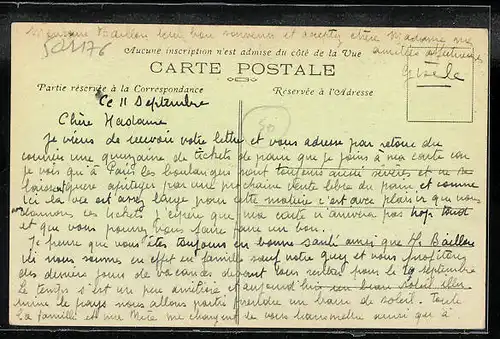 Monsieur Baillou leur bon souvenir et acceptez chère Madame mes
amitiés affectueuses
50176
Aucune inscription n'est admise du côté de la Vue
Gisèle
CARTE POSTALE
Partie réservée à la Correspondance
Réservée à l'Adresse
Ce 11 Septembre
50
Chère Madame
Je viens de recevoir votre lettre et vous adresse par retour du
courrier une quinzaine de tickets de pain que je joins à ma carte car
je vois qu'à Paris les boulangers sont toujours aussi sévères et ne se
laissent guère apitoyer par une prochaine vente libre du pain et comme
ici la vie est assez large pour cette matière c'est avec plaisir que nous
donnons ces tickets J'espère que ma carte n'arrivera pas trop tard
et que vous pourrez vous faire faire un bon.
Je pense que vous êtes toujours en bonne santé ainsi que M. Baillou
ici nous sommes en effet en famille sauf notre Guy et vous profiterez
des derniers jours de vacances devant vous rentrer pour le 29 septembre
Le temps s'est un peu amélioré et aujourd'hui un beau soleil illu-
mine le pays nous allons partir prendre un bain de soleil. Toute
la famille et ma Mère me chargent de vous transmettre ainsi que à